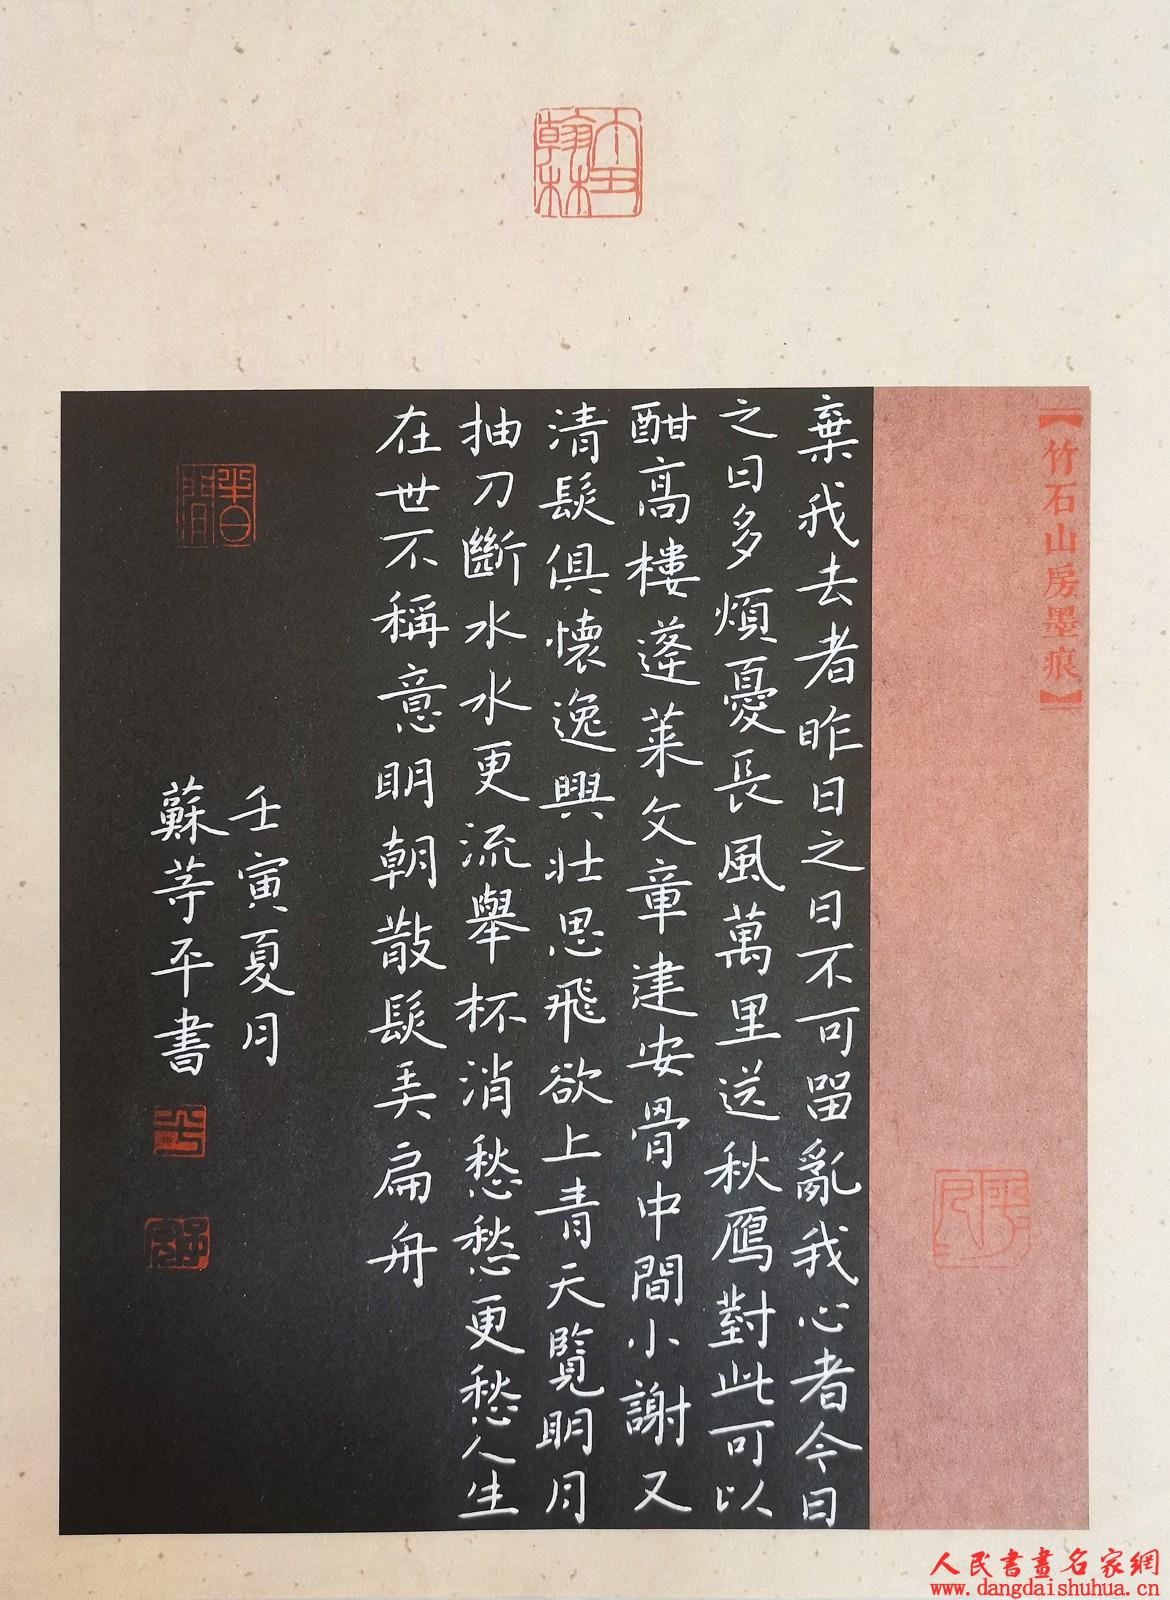 【竹石山房墨痕】
棄我去者昨日之日不可留亂我心者今日
之日多煩憂長風萬里送秋鴈對此可以
酣高樓蓬萊文章建安骨中間小謝又
清髮俱懷逸興壯思飛欲上青天覽明月
抽刀斷水水更流舉杯消愁愁更愁人生
在世不稱意明朝散髮弄扁舟
壬寅夏月
蘇䓁平書
半日閒
人民書畫名家網
www.dangdaishuhua.cn